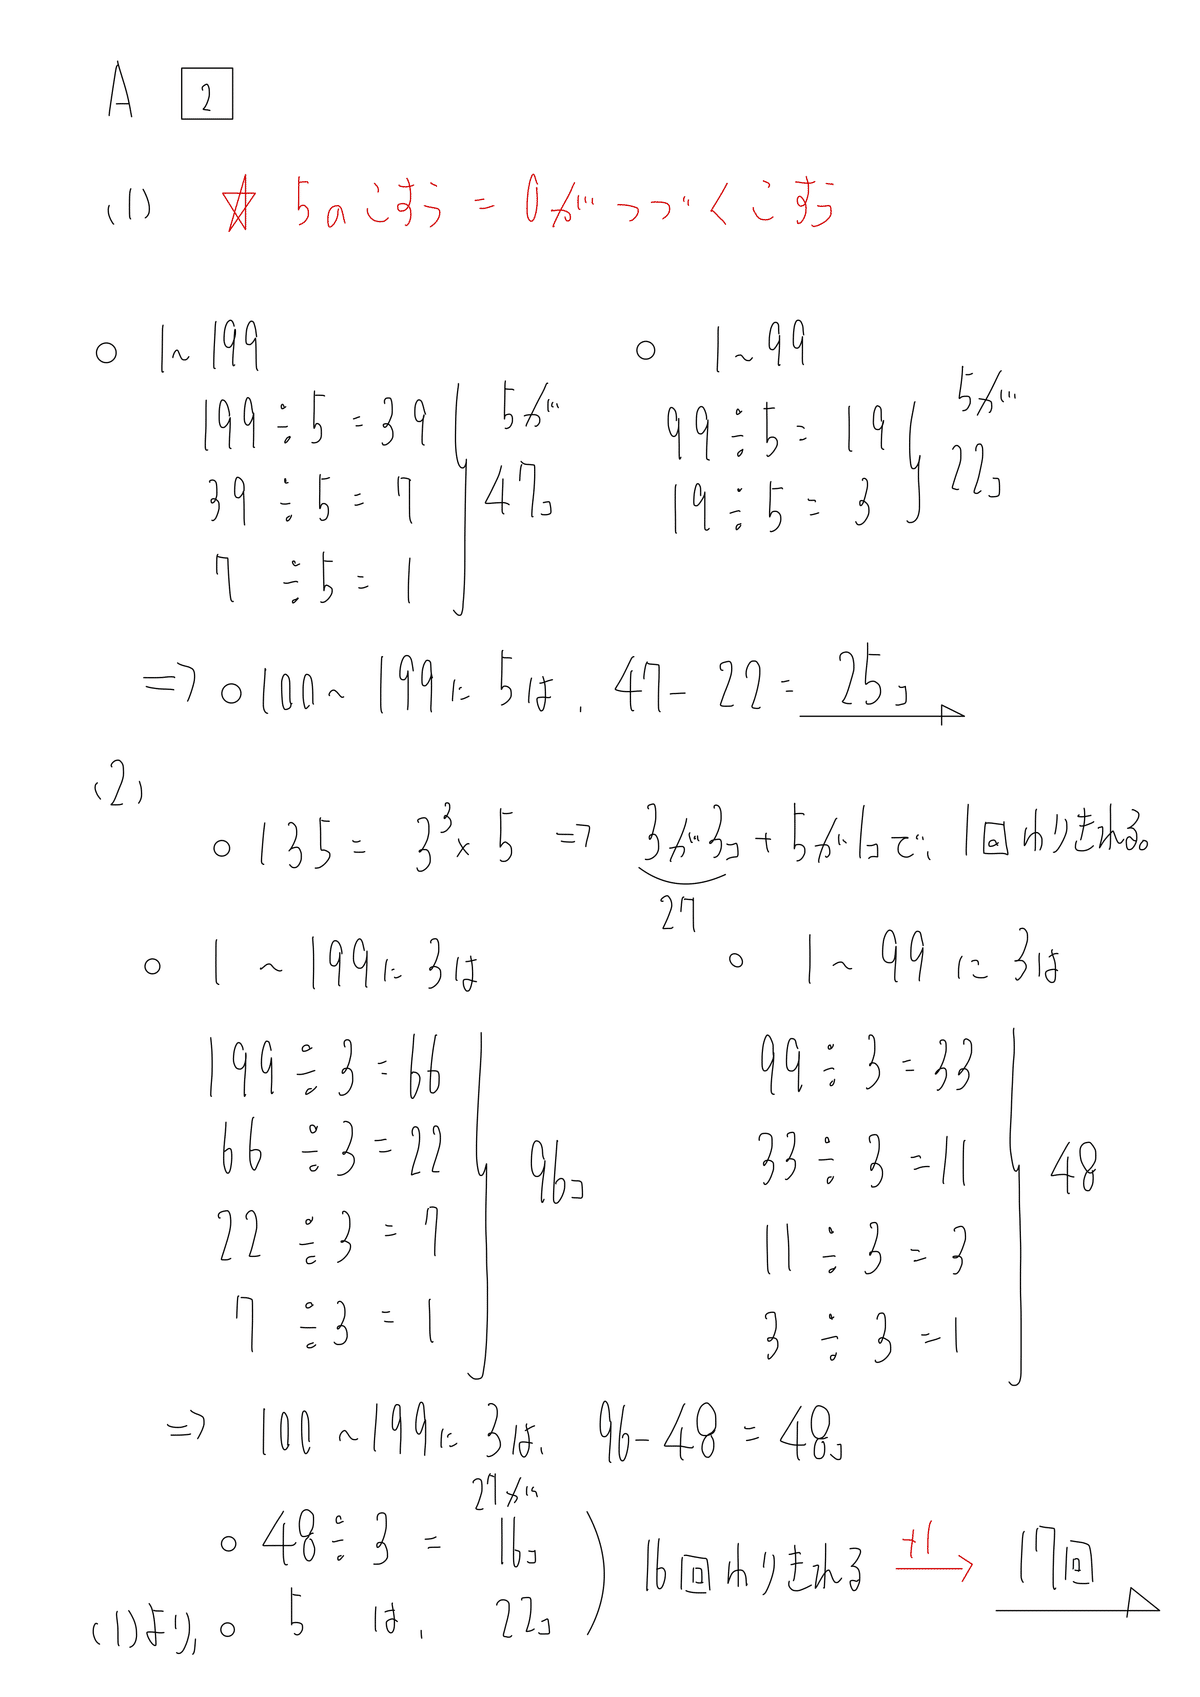 A 2
(1) ☆ 5のこすう = 0がつづくこすう
○ 1~199
199÷5=39
39÷5=7
7÷5=1
5が
47コ
○ 1~99
99÷5=19
19÷5=3
5が
22コ
=> ○100~199に5は、47-22=25コ
(2)
○135=3³×5 => 3が3コ+5が1コで、1回わりきれる。
27
○ 1~199に3は
199÷3=66
66÷3=22
22÷3=7
7÷3=1
96コ
○ 1~99に3は
99÷3=33
33÷3=11
11÷3=3
3÷3=1
48
=> 100~199に3は、96-48=48コ
27が
○ 48÷3=16コ
(1)より、○ 5は、22コ
16回わりきれる +1 → 17回